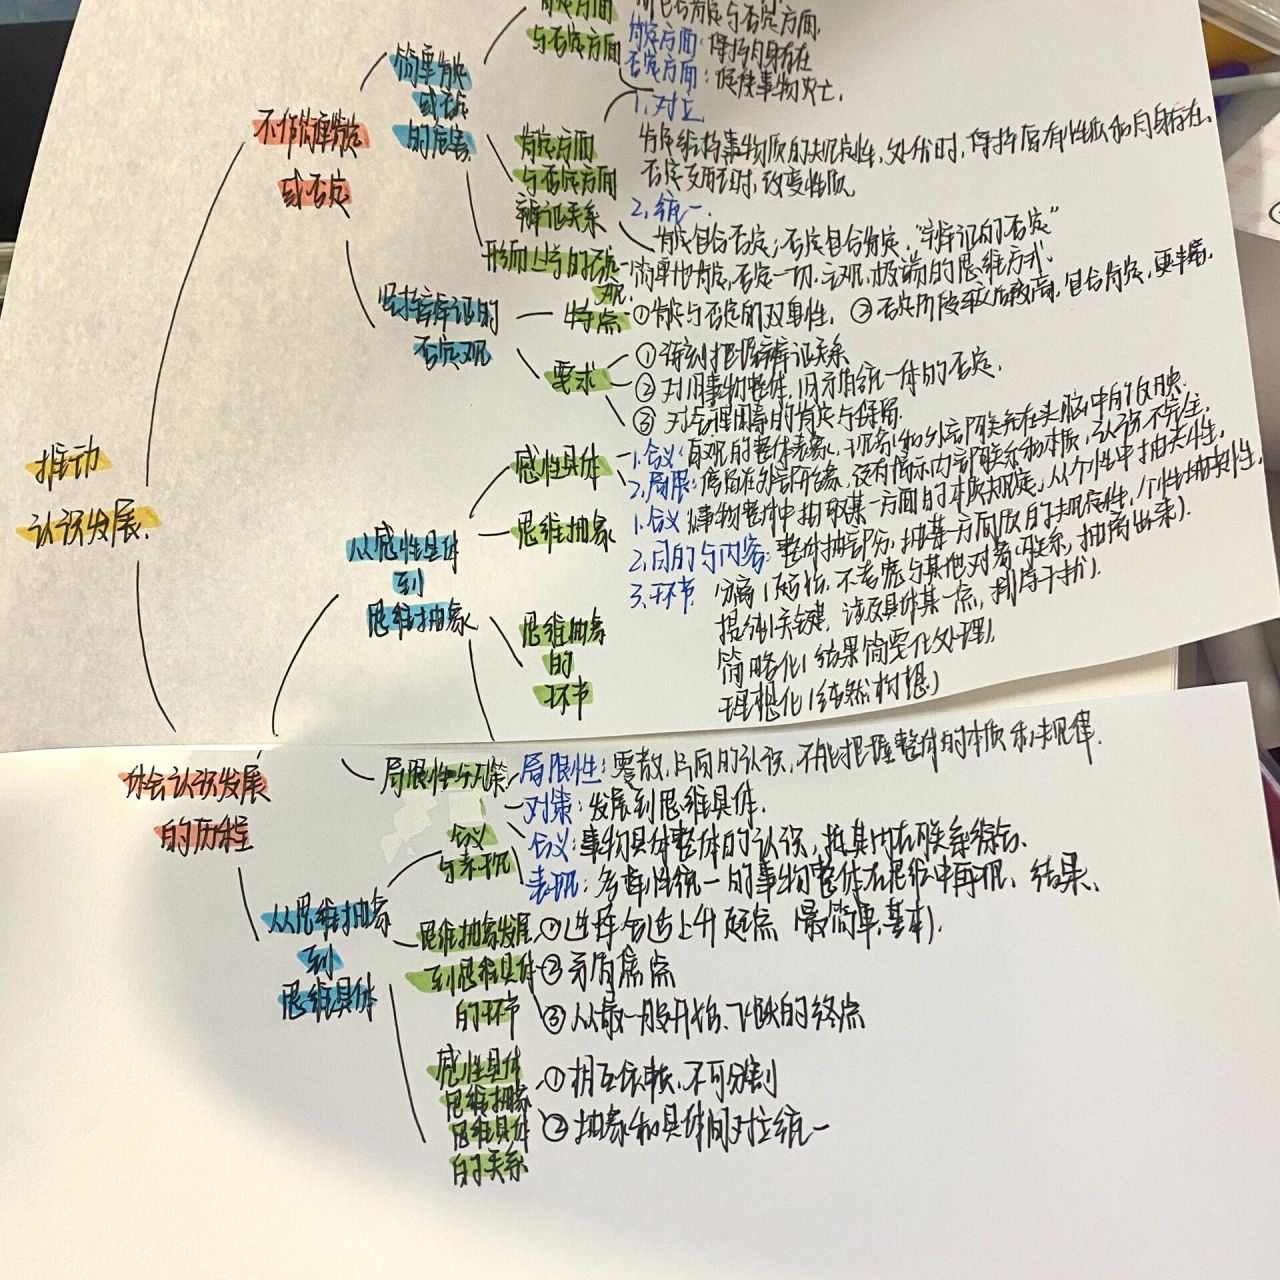 肯定方面
与否定方面
肯定方面：保持自身存在
否定方面：促使事物灭亡.
简单肯定
或否定
的危害
1.对立
不作简单肯定
或否定
肯定方面
与否定方面
辩证关系
肯定维持事物质的规定性，处优时，保持原有性质和自身存在.
否定支配时，改变性质.
2.统一.
肯定包含否定；否定包含肯定，“辩证的否定”
形而上学的否定
观.
简单地肯定，否定一切.主观、极端的思维方式.
坚持辩证的
否定观
特点
①肯定与否定的双重性. ②
要求
①
②对旧事物整体、的否定.
③对的肯定与保留.
推动
认识发展.
感性具体
1.含义：直观的整体表象、和外部联系在头脑中的反映.
2.局限：停留在外部形象，没有揭示内部联系和本质，认识不完全.
从感性具体
到
思维抽象
思维抽象
1.含义 事物整体中抽取某一方面的本质规定，从个性中抽共性.
2.目的与内容：整体抽部分，
3.环节
分离（起始.不考虑与其他对象联系，抽离出来）.
提纯（关键，涉及具体某一点，排除干扰）.
简略化（结果简要化处理）.
理想化（纯然构想）
思维抽象
的
环节
体会认识发展
的历程
局限性与对策
局限性：零散、片面的认识，不能把握整体的本质和规律.
对策：发展到思维具体.
含义
与表现
含义：事物具体整体的认识，按其内在联系综合.
表现：多样性统一的事物整体在思维中再现、结果、
从思维抽象
到
思维具体
思维抽象发展
到思维具体
的环节
①选择合适上升起点（最简单、基本）.
②矛盾焦点
③从最一般开始、飞跃的终点
感性具体
思维抽象
思维具体
的关系
①相互依赖、不可分割
②抽象和具体间对立统一